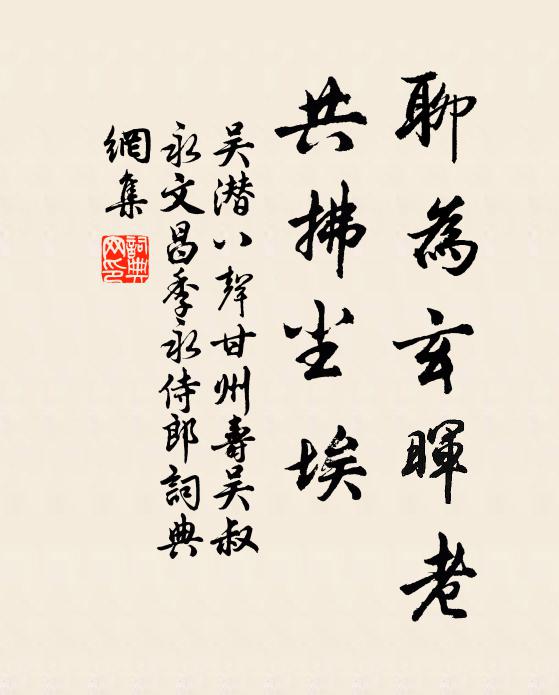 聊為玄暉老
共拂尘埃
吴潜八聲甘州壽吴叔
永文昌季永侍郎詞典
網集
詞典
网印